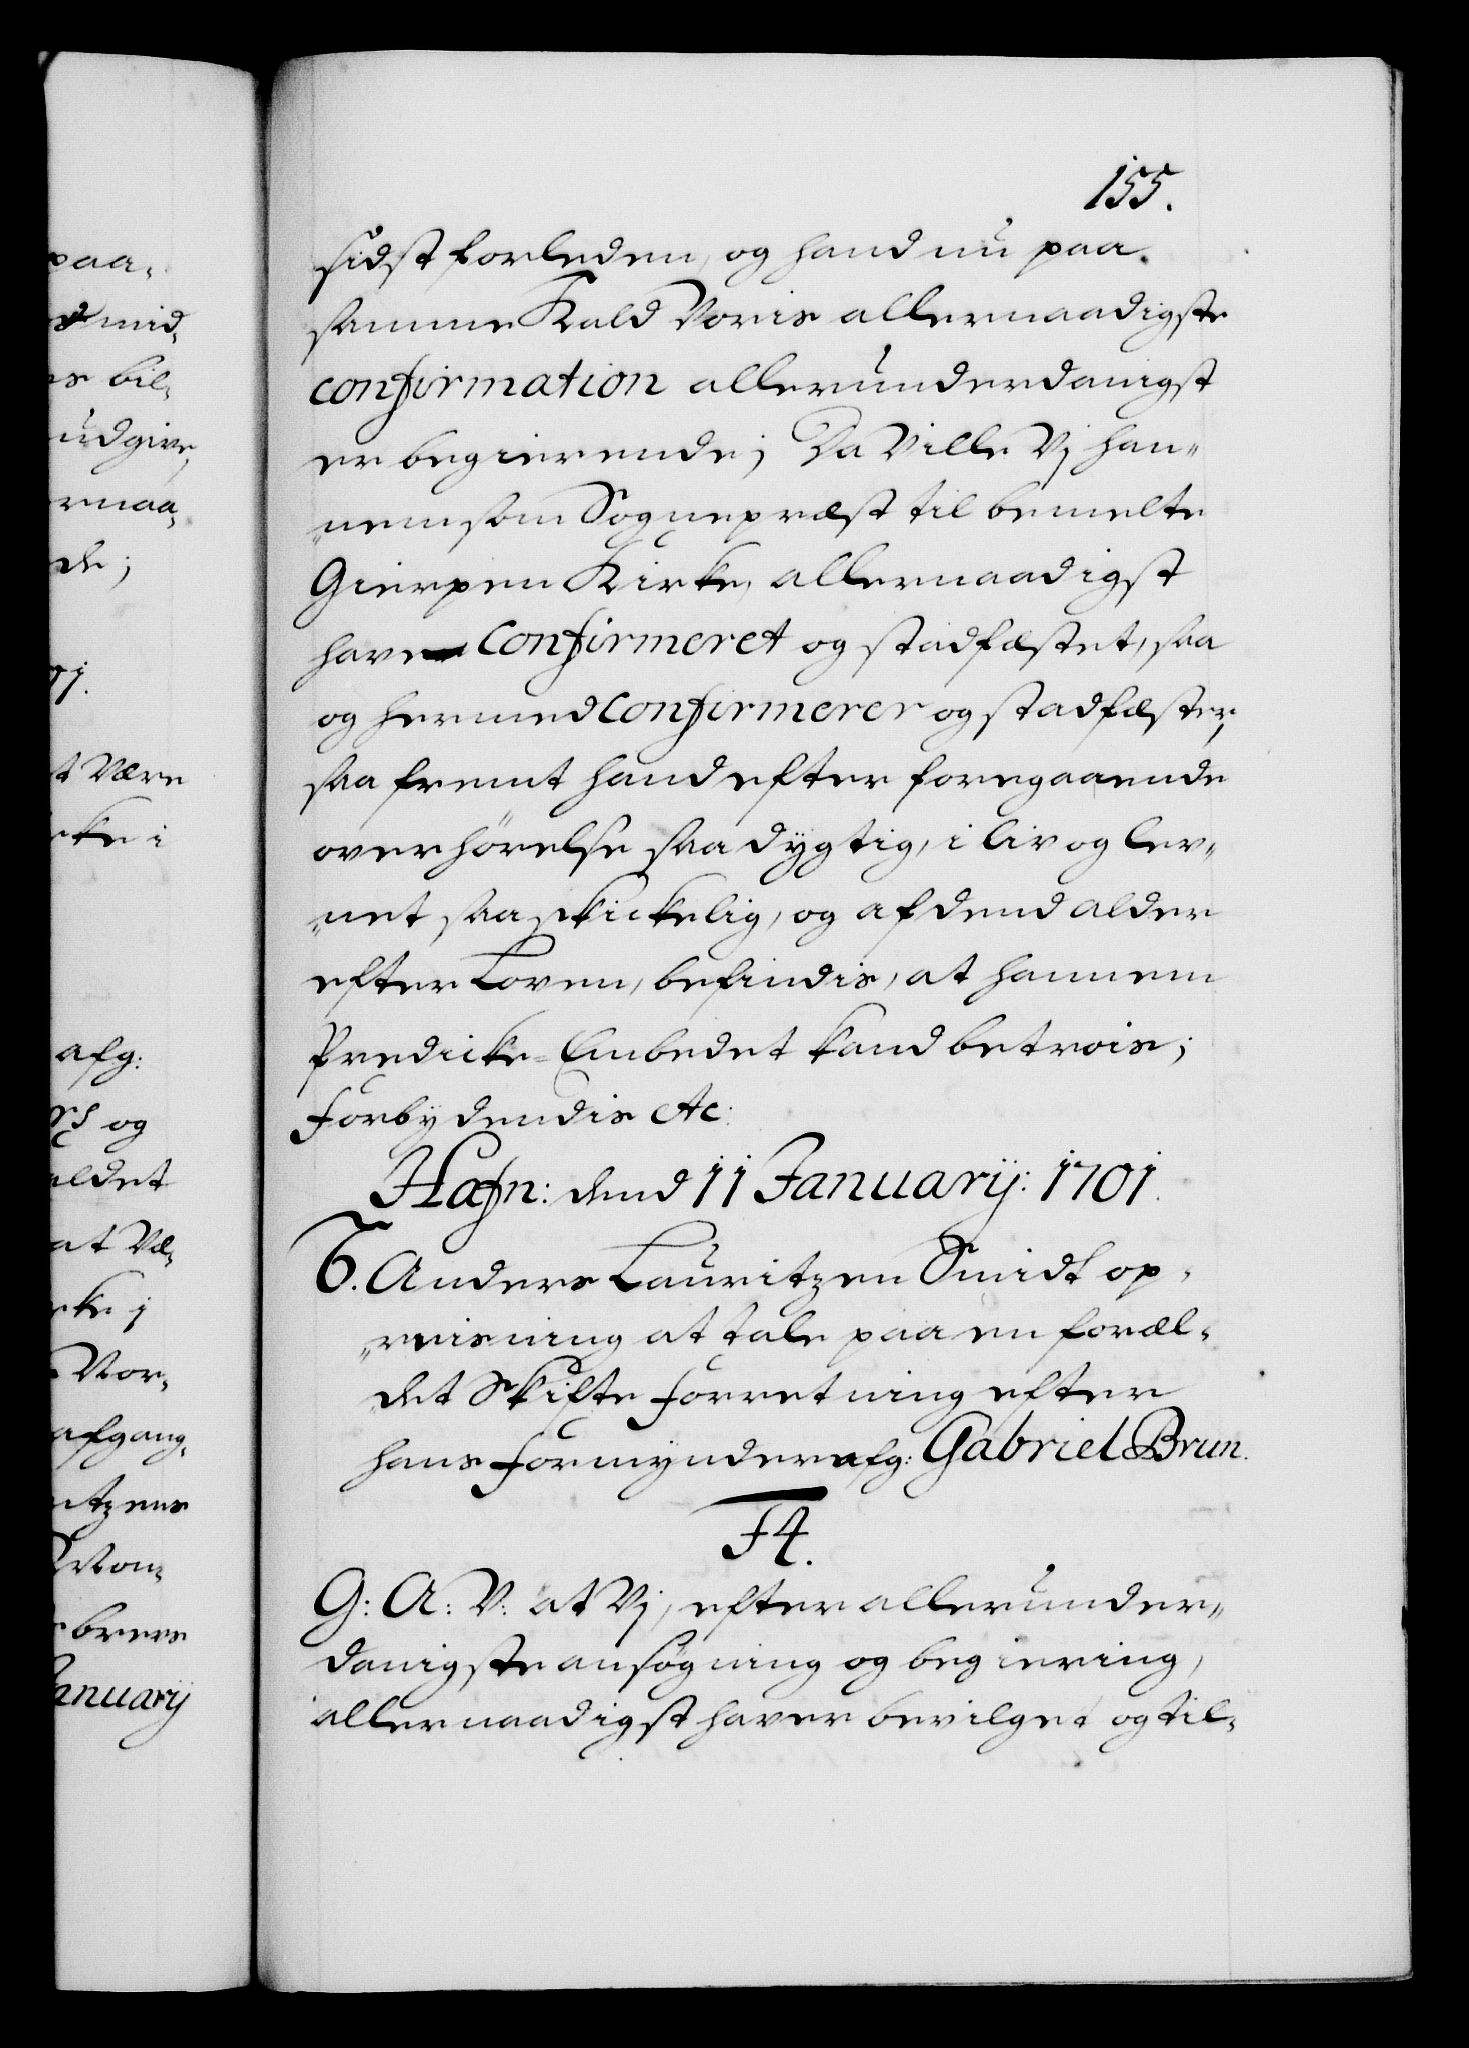 155.
sidst forleden, og hand nu paa
samme Kald Voris allernaadigste
confirmation allerunderdanigst
er begierende; Da Ville Vj han„
„nem som Sognepræst til bemelte
Gierpen Kirke, allernaadigst
have confirmeret og stadfæstet, saa
og hermed confirmerer og stadfæster,
saa fremt hand efter foregaaende
overhørelse saa dygtig, i liv og lev„
„net saa skickelig, og af dend alder
efter Loven, befindis, at hannem
Predicke-Embedet kand betrois;
Forbydendis etc:
Hafn: dend 11 Januarij: 1701.
Anders Lauritzen Smidt op„
„reisning at tale paa en foræl„
det Skifte Forretning efter
hans Formynder afg: Gabriel Brun.
F4.
G: A: V: at Vj, efter allerunder„
danigste ansøgning og begiering,
allernaadigst haver bevilget og til„
paa„
mid„
bil„
udgive,
rnaa„
de;
t Være
rke i
afg:
og
aldet
at Væ„
rke j
Vor„
afgang„
ritzens
brevs
Januarij